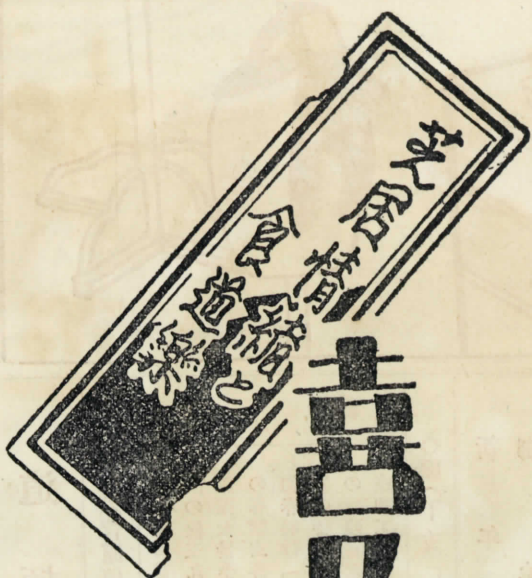 芝居情緒と
食道樂
喜